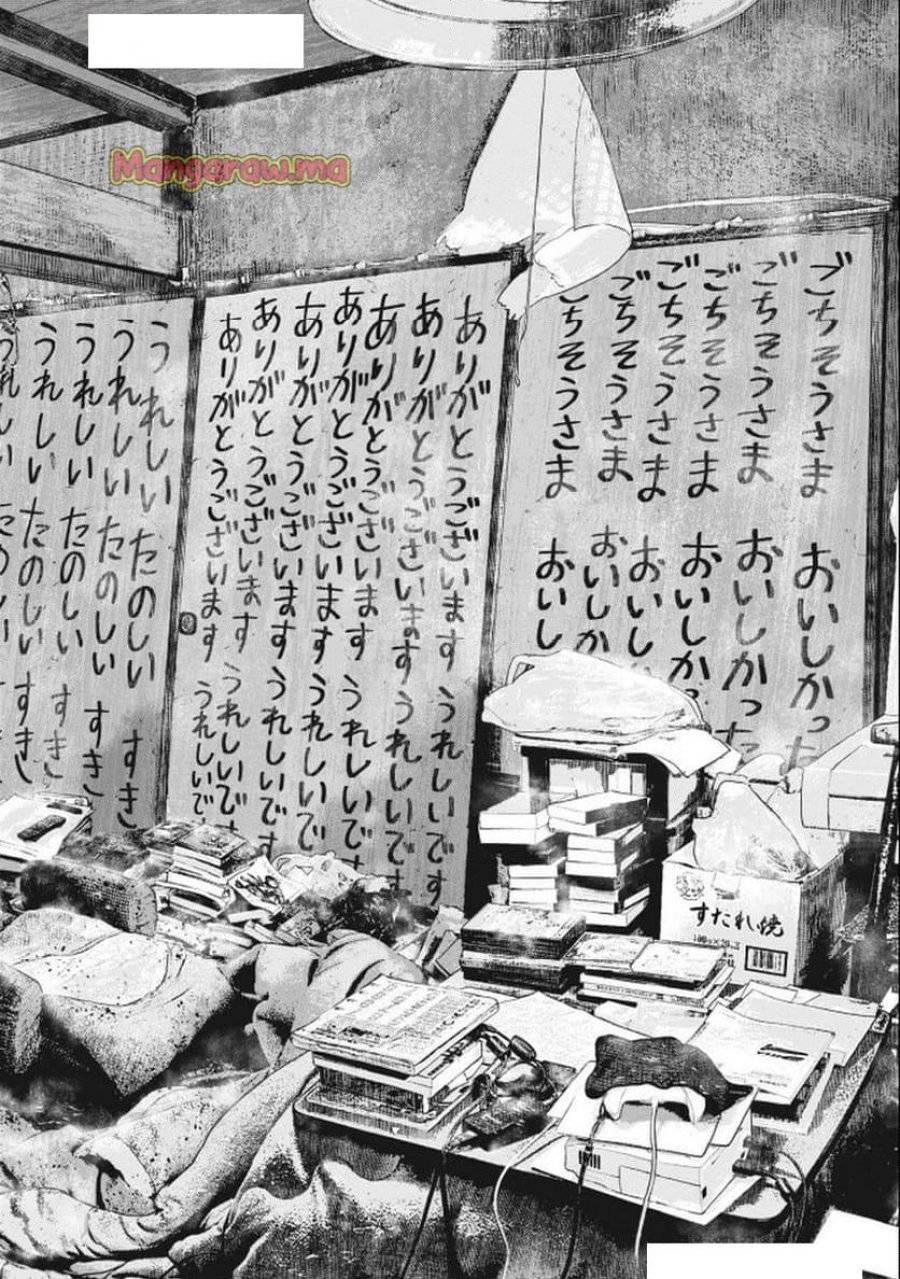 Mangaraw.ma
ごちそうさま おいしかった
ごちそうさま おいしかった
ごちそうさま おいしか
ごちそうさま おいし
ごちそうさま おいしか
ごちそうさま おいし
ありがとうございます うれしいです
ありがとうございます うれしいです
ありがとうございます うれしいです
ありがとうございます うれしいで
ありがとうございます うれしいです
ありがとうございます うれしいです
ありがとうございます うれしいで
うれしい たのしい すき
うれしい たのしい すき
うれしい たのしい すき
うれしい たのしい すき
すだれ焼